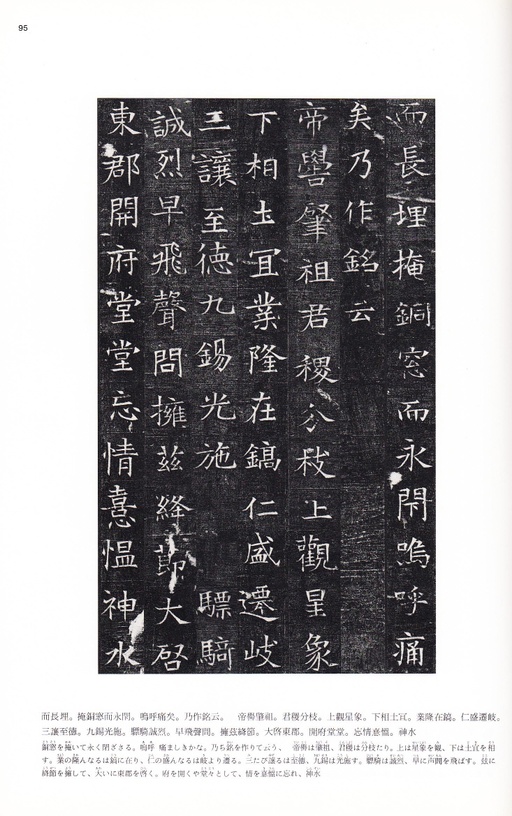 95
而長埋掩銅窓而永閇嗚呼痛
矣乃作銘云
帝嚳肈祖君稷分枝上觀星象
下相圡宜業隆在鎬仁盛遷岐
三讓至德九錫光施驃騎
誠烈早飛聲問擁茲絳節大啓
東郡開府堂堂忘情憙愠神水
而長埋。掩銅窓而永閇。嗚呼痛矣。乃作銘云。 帝嚳肇祖。君稷分枝。上觀星象。下相土宜。業隆在鎬。仁盛遷岐。
三讓至德。九錫光施。驃騎誠烈。早飛聲問。擁茲絳節。大啓東郡。開府堂堂。忘情憙慍。神水
銅窓を掩いて永く閇ざさる。嗚呼 痛ましきかな。乃ち銘を作りて云う、 帝嚳は肇祖、君稷は分枝たり。上は星象を觀、下は土宜を相
す。業の隆んなるは鎬に在り、仁の盛んなるは岐より遷る。三たび讓るは至德、九錫は光施す。驃騎は誠烈、早に声聞を飛ばす。玆に
絳節を擁して、大いに東郡を啓く。府を開くや堂々として、情を憙慍に忘れ、神水